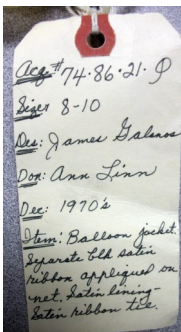 Acq# 74·86·21·P
Size: 8-10
Des: James Galanos
Don: Ann Linn
Dec: 1970's
Item: Balloon jacket.
Separate blk satin
ribbon appliqued on
net. Satin lining-
Satin ribbon tie.